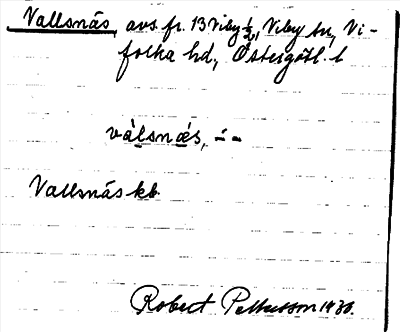 Vallsnäs, avs. fr. 13 Viby ½, Viby sn, Vi-
folka hd, Östergötl. l
vàlsnäs, ∸ -
Vallsnäs kb.
Robert Pettersson 1930.